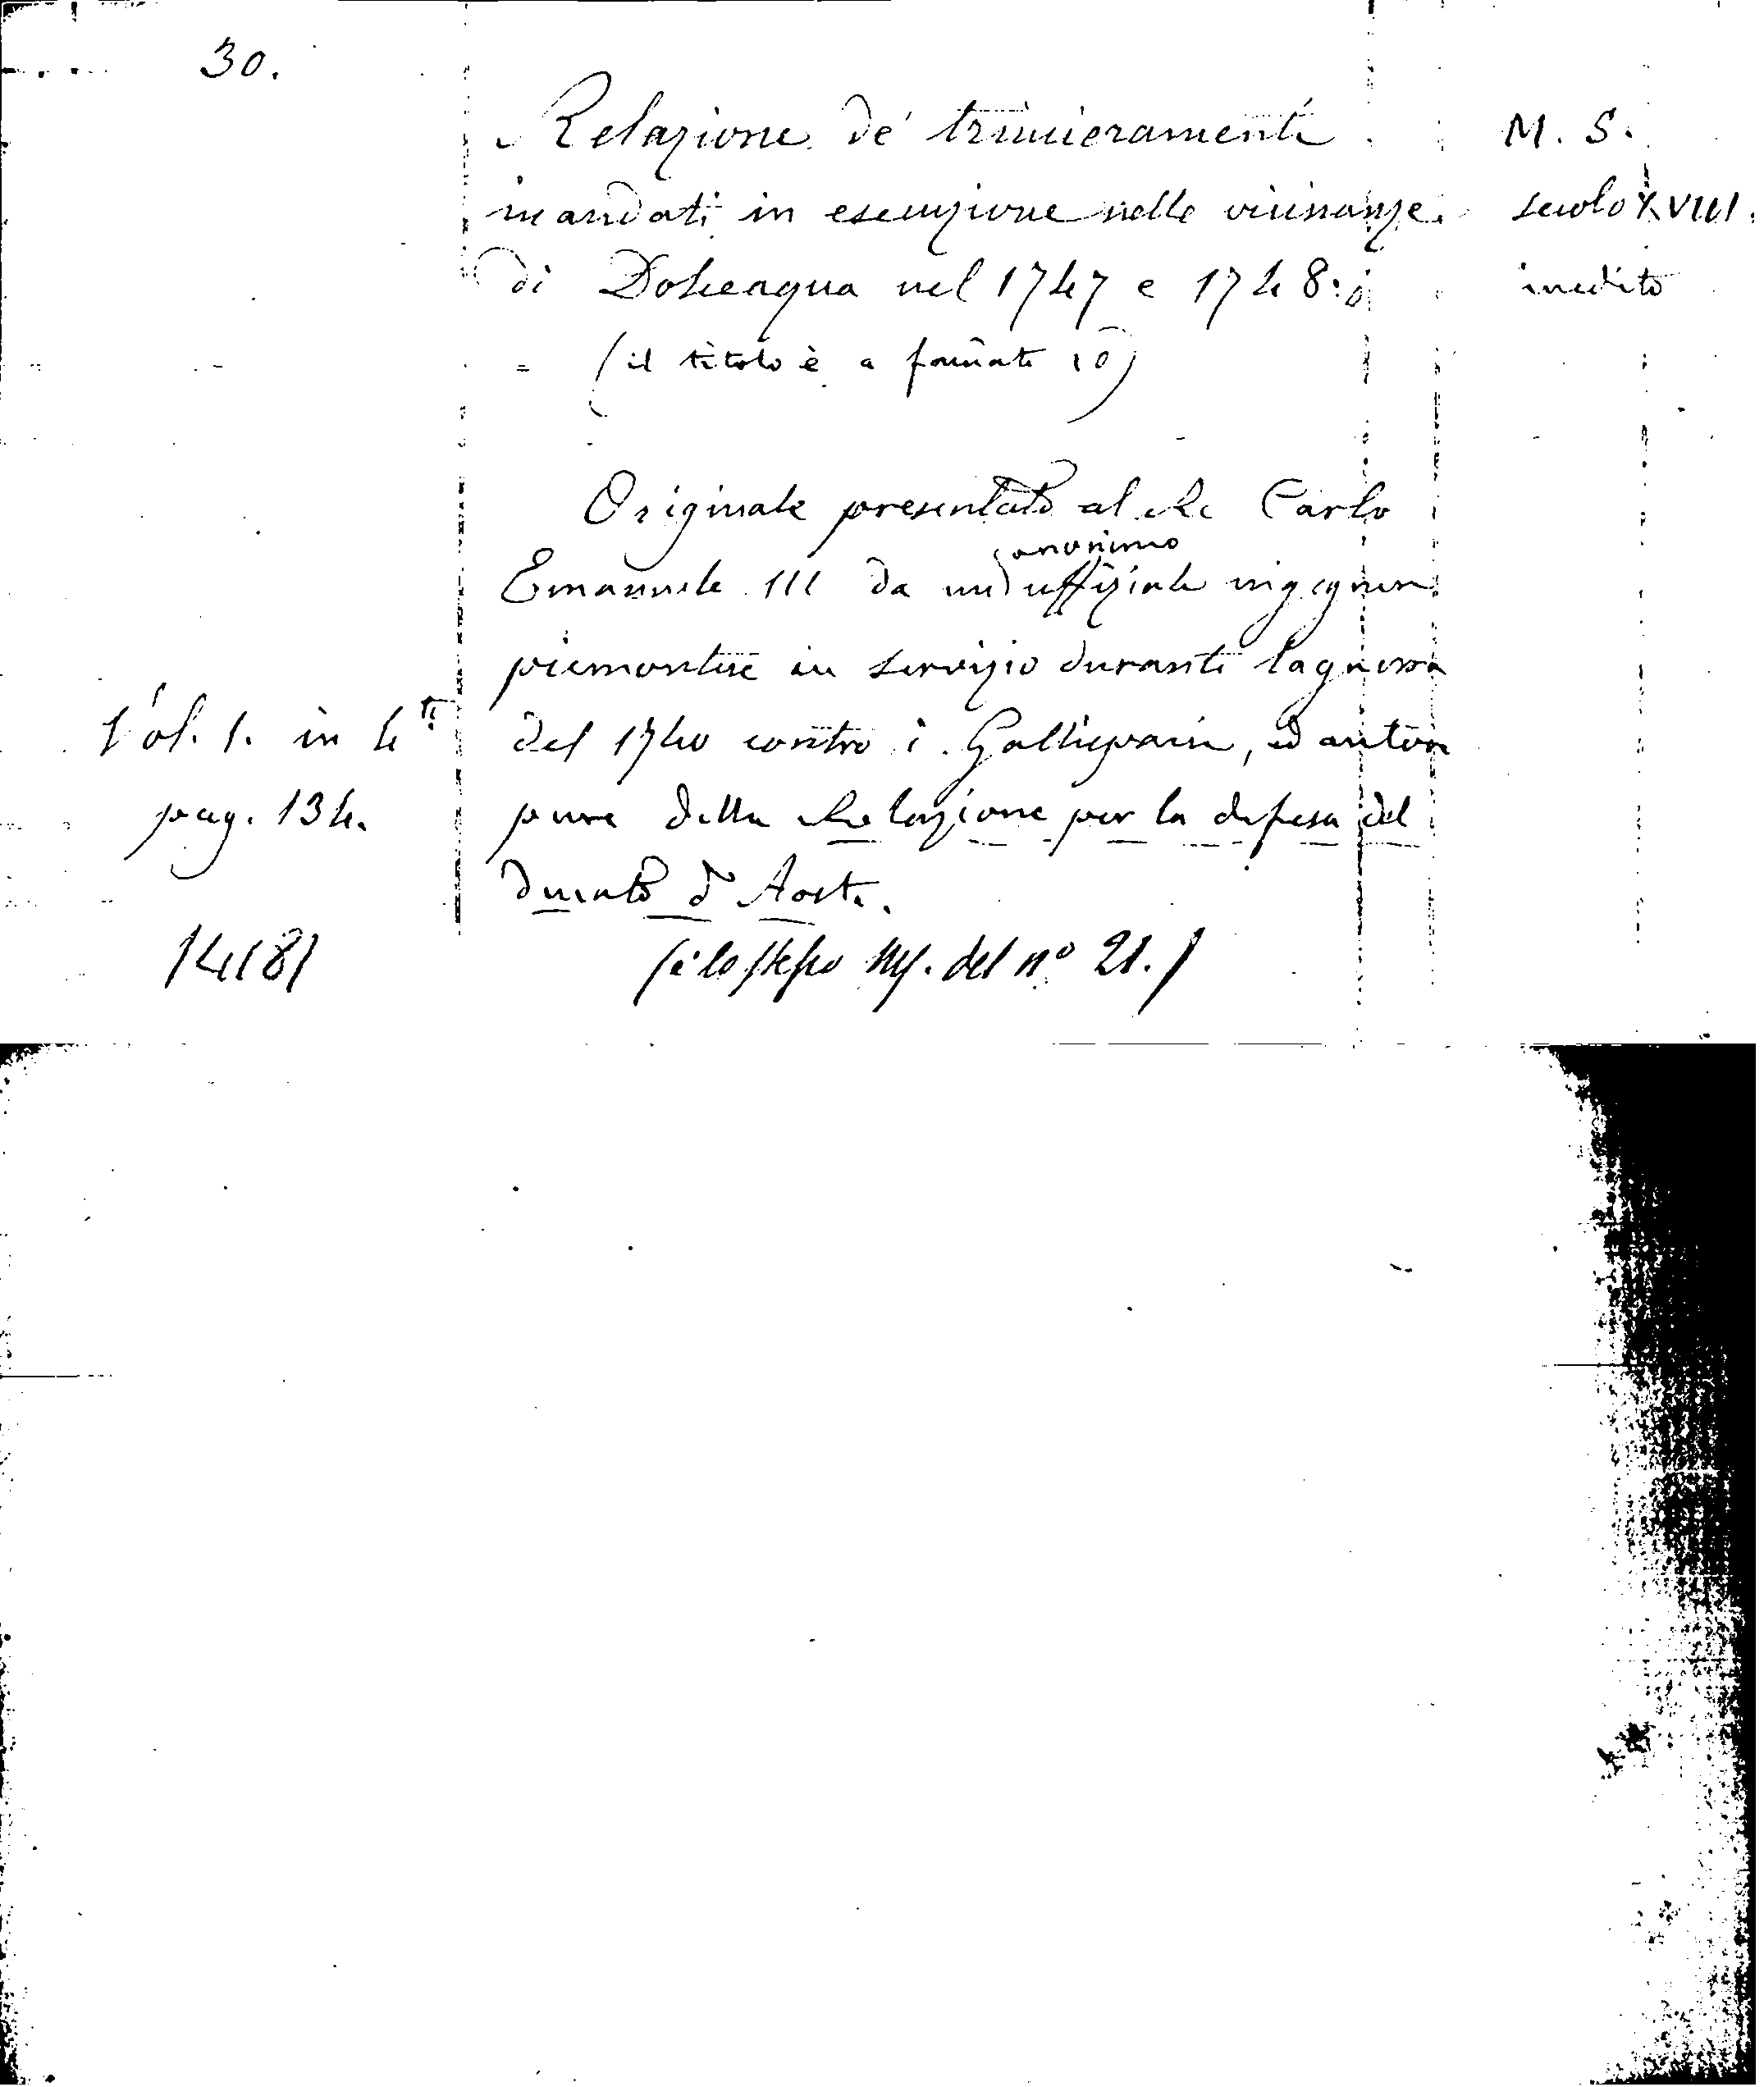 30.
Relazione de' trincieramenti
M. S.
mandati in esecuzione nelle vicinanze
secolo XVIII.
di Dolceaqua nel 1747 e 1748:
inedito
= (il titolo è a 10)
Originale presentato al Re Carlo
anonimo
Emanuele III da un uffiziale ingegnere
piemontese in servizio durante la guerra
Vol. 1. in 4to
del 1740 contro i Gallispani, ed autore
pag. 134.
pure della Relazione per la difesa del
ducato d'Aosta.
14181
(è lo stesso Ms. del nº 21.)